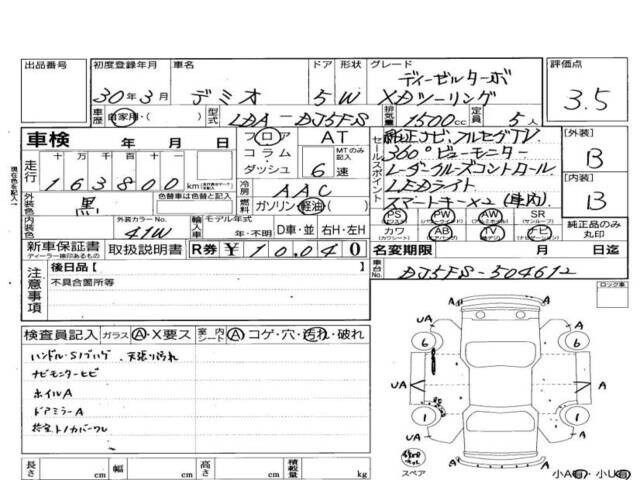 出品番号 初度登録年月 車名 ドア 形状 グレード 評価点
30年3月 デミオ 5 W ディーゼルターボ
XDツーリング 3.5
車歴 自家用・( ) 型式 LDA-DJ5FS 排気量 1500cc 定員 5人
車検 年 月 日 フロア AT セールスポイント 純正ナビ、フルセグTV [外装]
走行 十 万 千 百 十 一 コラム MTのみ記入 360°ビューモニター B
163800 km ダッシュ 6速 レーダークルーズコントロール
外装色 黒 色替車は元色記入→( ) 冷房 AAC LEDライト [内装]
内装色 外装カラーNo. 41W 燃料 ガソリン 軽油・( ) スマートキー×2 (車内) B
輸入車 モデル年式 年・不明 D車・並 右H・左H PS PW AW SR
カワ AB TV ナビ 純正品のみ丸印
新車保証書 取扱説明書 R券 ¥10,040 名変期限 月 日迄
ディーラー検印あるもの
注意事項 後日品[ ] 車台No. DJ5FS-504612
不具合箇所等 ロック車
検査員記入 ガラス A・X要ス 室内シート A コゲ・穴・汚れ・破れ
ハンドル・Sノブハゲ 天張り汚れ
ナビモニターヒビ
ホイルA
ドアミラーA
UA A
6 6
UA UA A
1 1
A A
スペア
長さ cm 幅 cm 高さ cm 積載量 kg
小A有・小U有